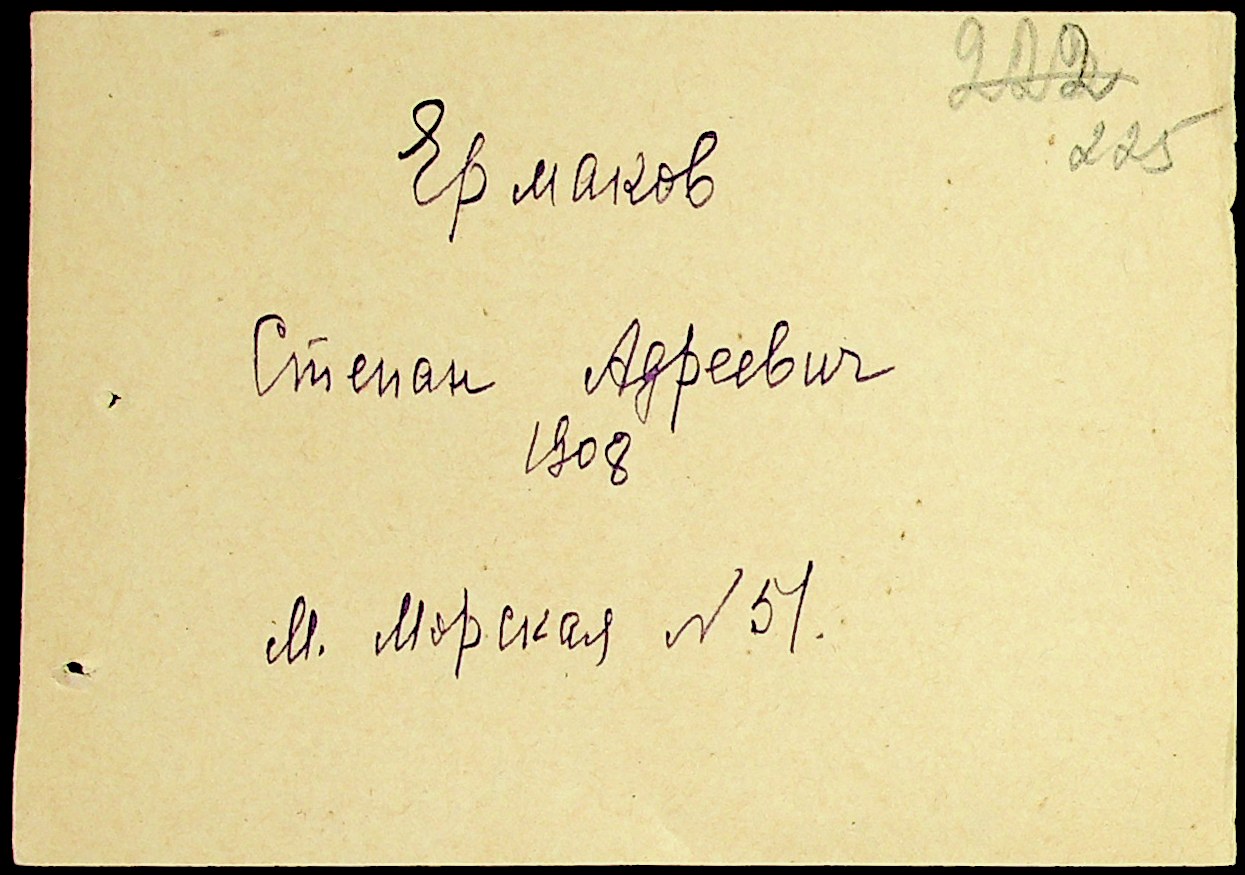 222
225
Ермаков
Степан Адреевич
1908
М. Морская N 51.